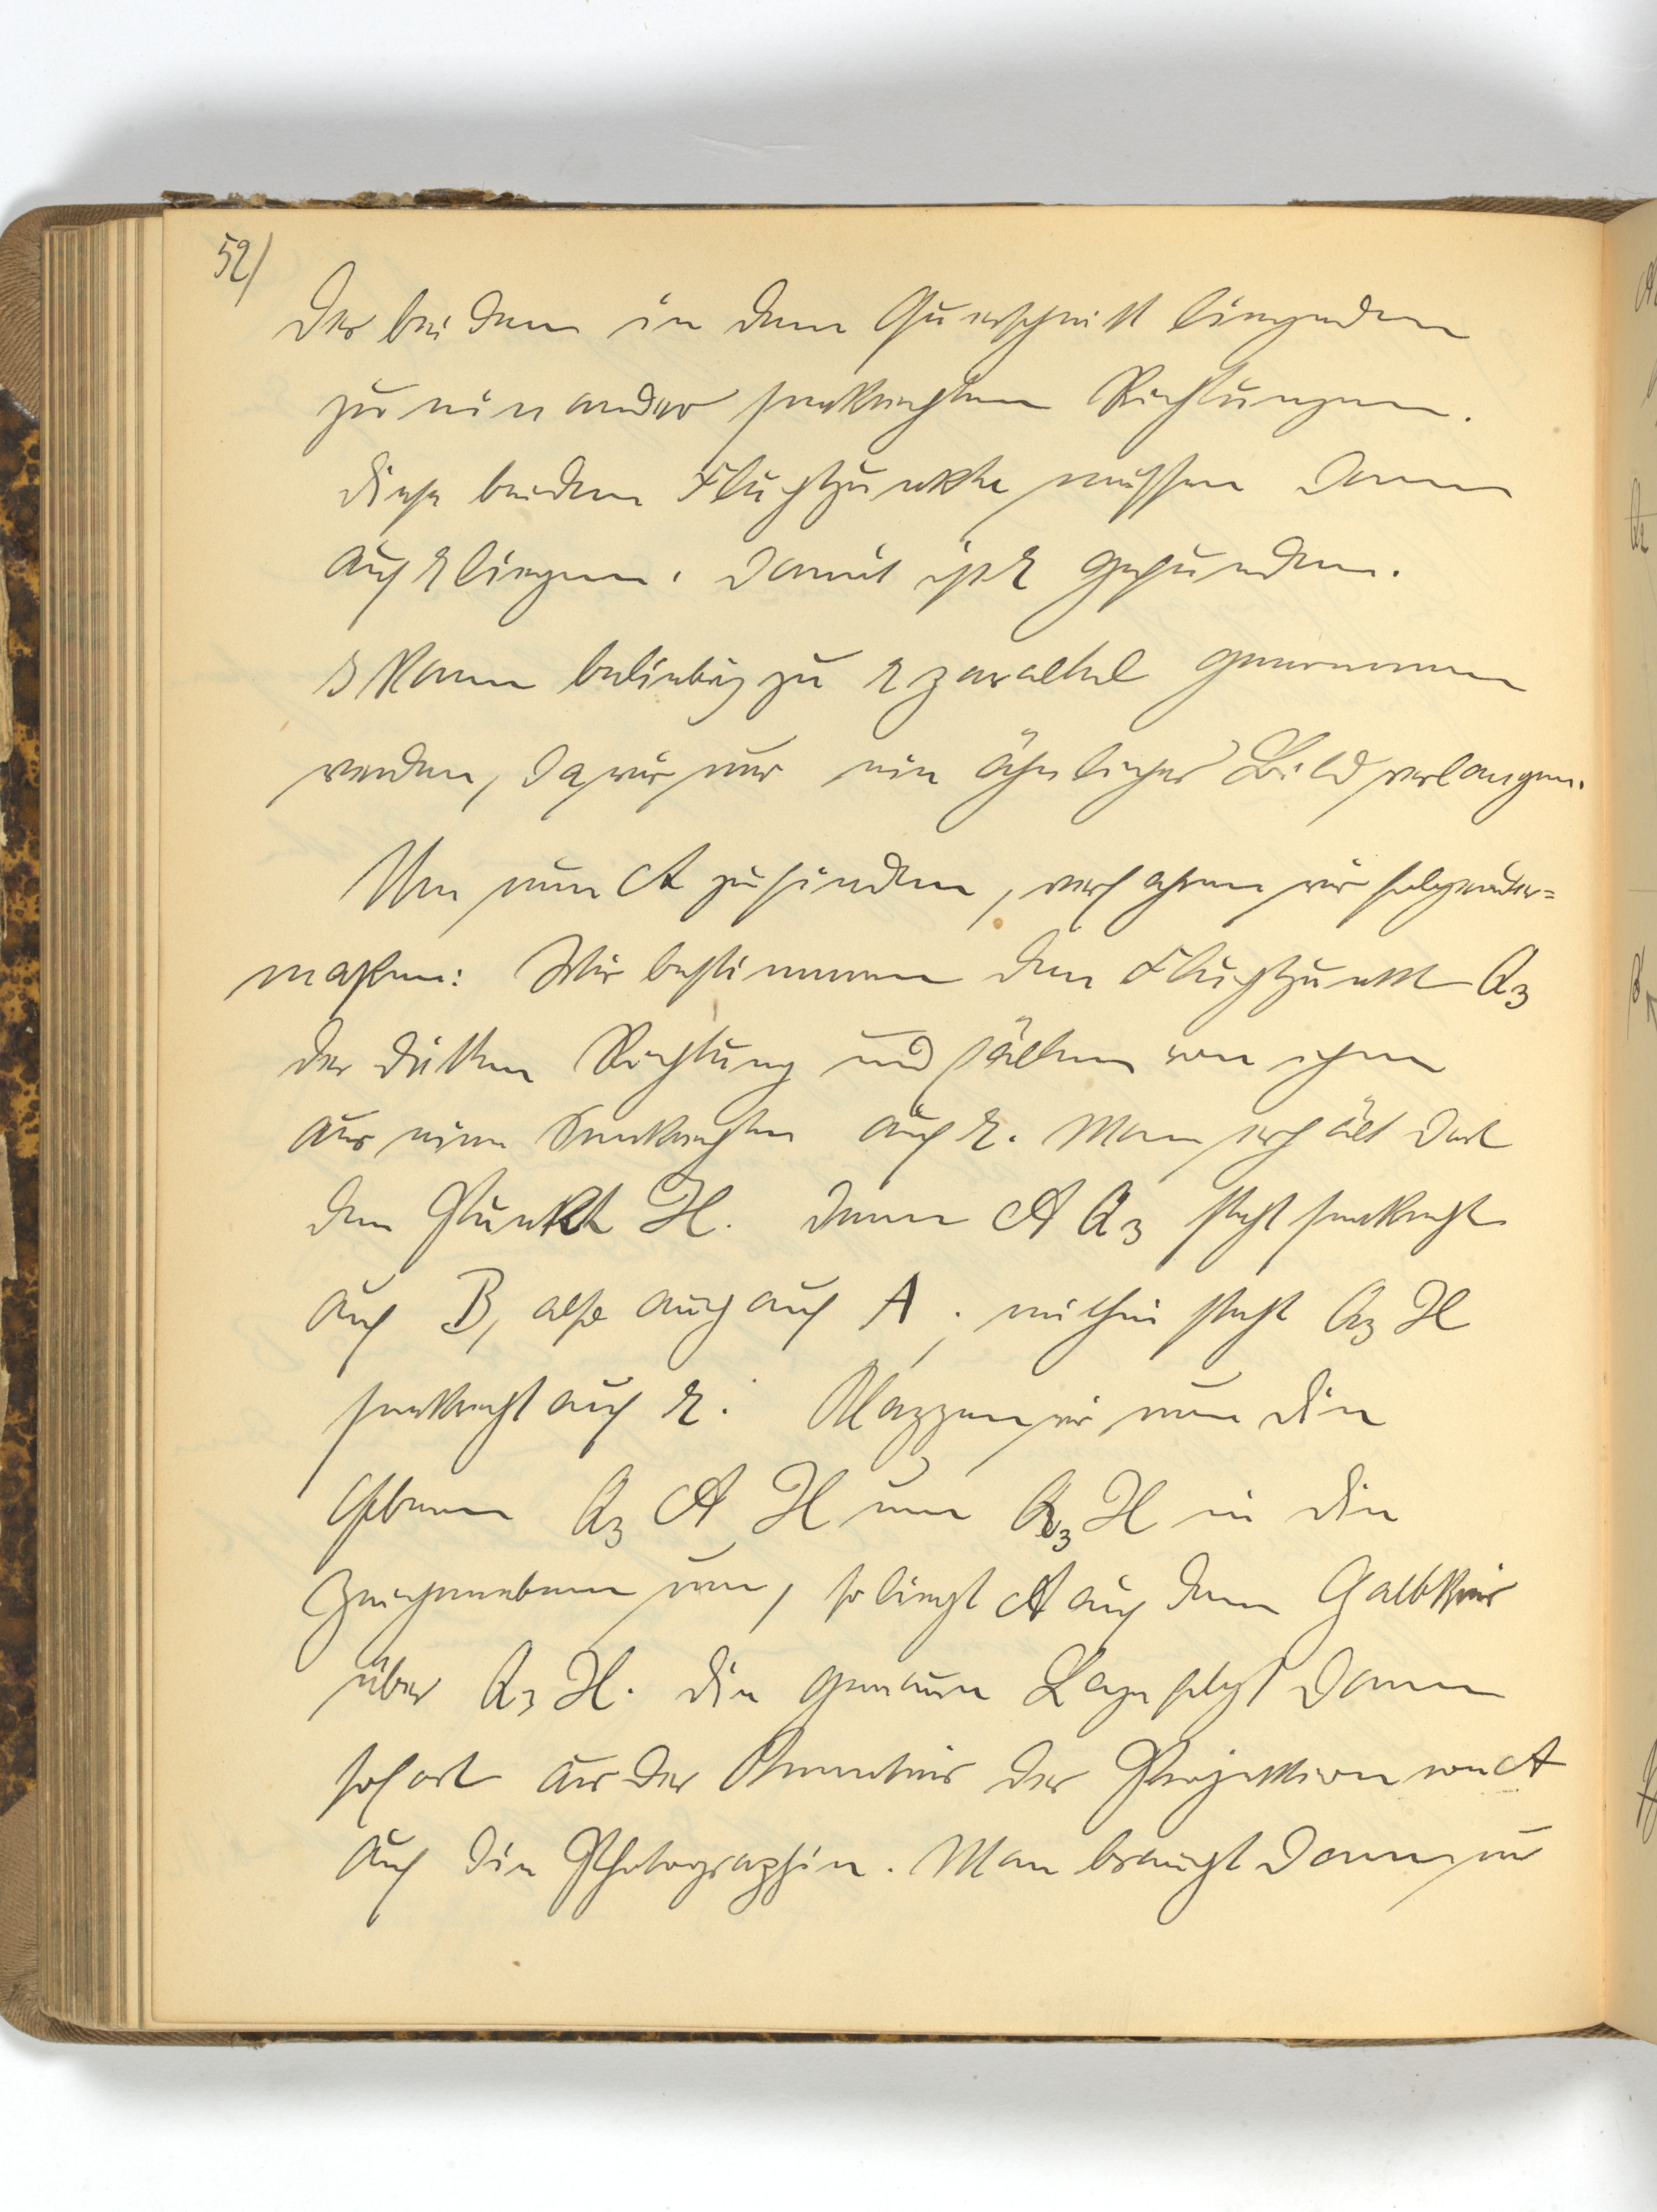 52/
der beiden in dem Querschnitt liegenden
zu einander senkrechten Richtungen.
Diese beiden Fluchtpunkte müssen dann
auf r liegen. Damit ist r gefunden.
s kann beliebig zu r parallel genommen
werden, da wir nur ein ähnliches Bild verlangen.
Um nun A zu finden, verfahren wir folgender=
maßen: Wir bestimmen den Fluchtpunkt Q3
der dritten Richtung und fällen von ihm
aus eine Senkrechte auf r. Man erhält dort
den Punkt H. Denn A Q3 steht senkrecht
auf B, also auch auf A; mithin steht Q3 H
senkrecht auf r. Klappen wir nun die
Ebene Q3 A H um Q3 H in die
Zeichenebene um, so liegt A auf dem Halbkreis
über Q3 H. Die genaue Lage folgt dann
sofort aus der Kenntnis der Projektion von A
auf die Photographie. Man braucht dann nur